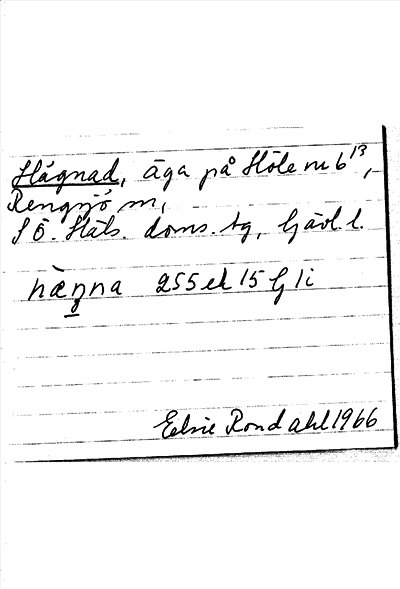 Hägnad, äga på Höle nr 6¹³,
Rengsjö sn,
S Ö. Häls. doms. tg, Gävl. l.
hæŋna 255 ek 15 G 1i
Elsie Rondahl 1966